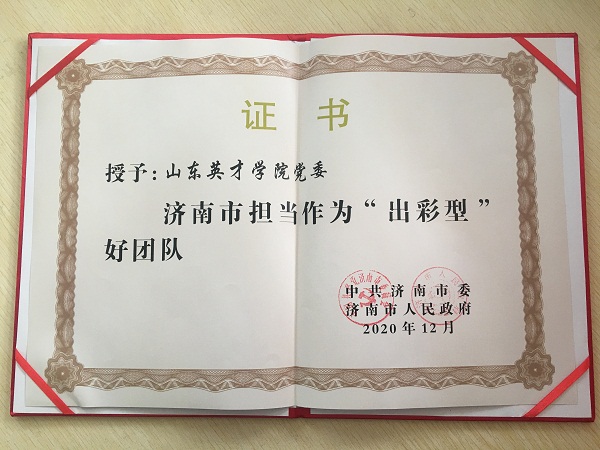 证书
授予：山东英才学院党委
济南市担当作为“出彩型”
好团队
中共济南市委
济南市人民政府
2020年12月